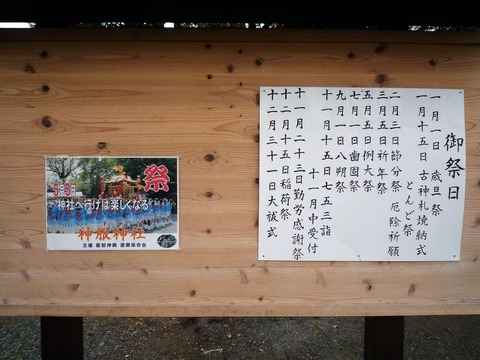 御祭日
一月一日歳旦祭
一月十五日古神札焼納式
とんど祭
二月三日節分祭 厄除祈願
三月五日祈年祭
五月五日例大祭
七月一日歯固祭
九月一日八朔祭
十一月十五日七五三詣
十一月中受付
十一月二十三日勤労感謝祭
十二月十五日稲荷祭
十二月三十一日大祓式
祭
神社へ行けば楽しくなる
神服神社
主催 服部神輿 渡御保存会